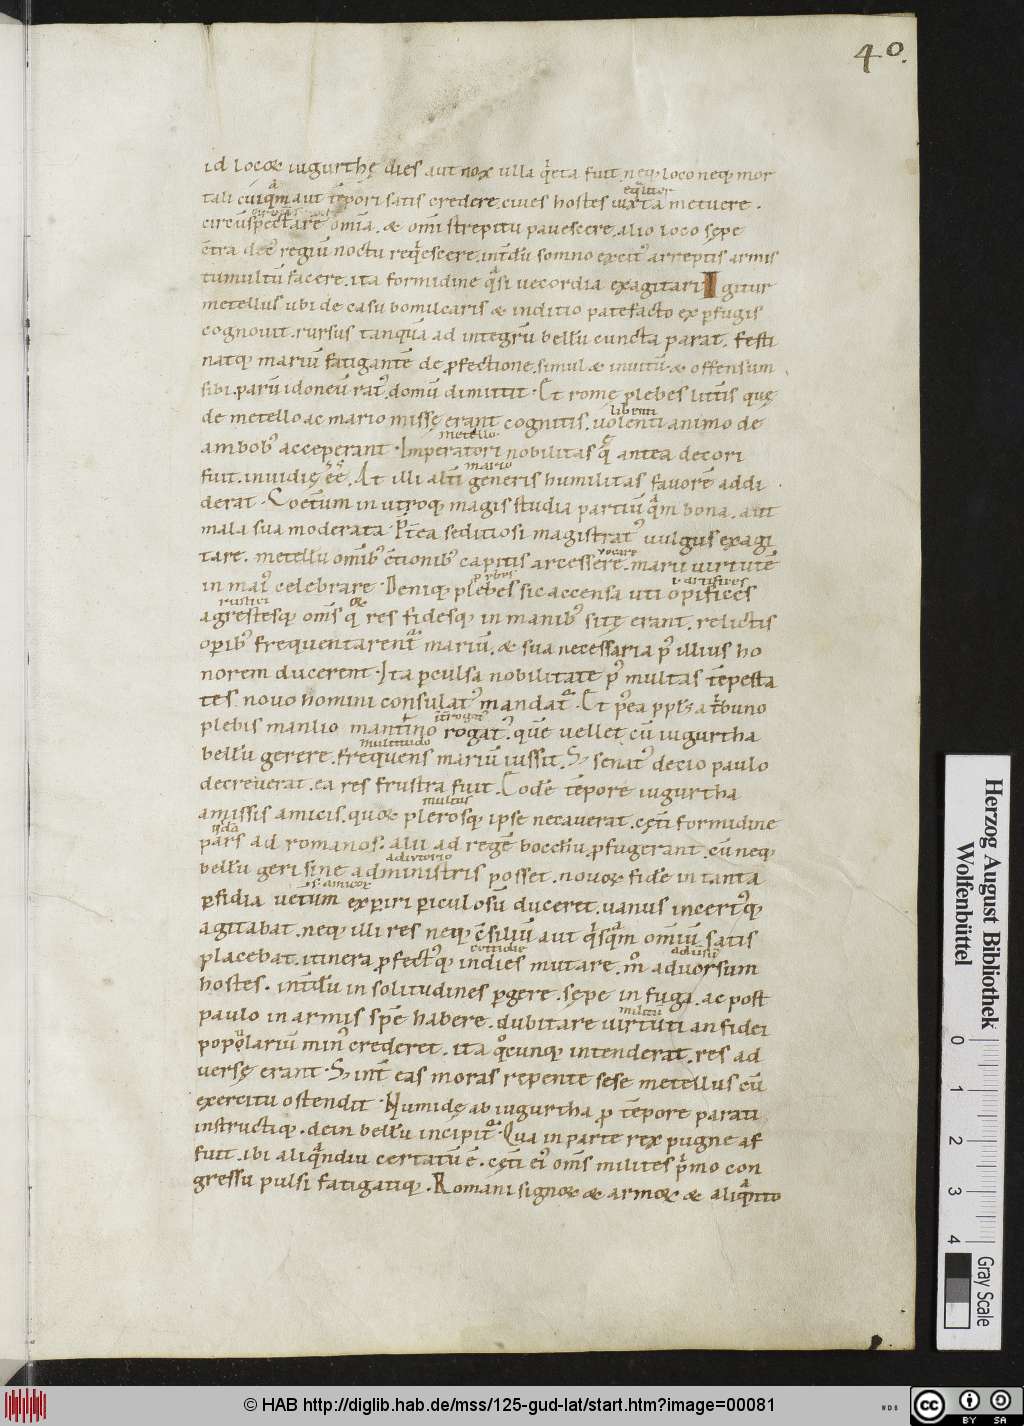 40.
id locoꝝ iugurthę dies aut nox ulla q̇eta fuit neq; loco neq; mor
tali cuiq̃m aut tẽpori satis credere. ciues hostes iuxta metuere.
circũspectare omĩa. & omĩ strepitu pauescere. alio loco sępe
c̃tra dec' regiũ noctu req̇escere. int̃dũ somno excit' arreptis armis
tumultũ facere. ita formidine q̃si uecordia exagitari. Igitur
metellus ubi de casu bomilcaris & inditio patefacto ex ꝑfugis
cognouit. rursus tanquã ad integrũ bellũ cuncta parat. festi
natq; mariũ fatigantẽ de ꝓfectione. simul & inuitũ & offensum
sibi. parũ idoneũ rat'. domũ dimittit. Et romę plebes litt̃is quę
de metello ac mario missę erant cognitis. uolenti animo de
libenti
ambob' acceperant. Imperatori nobilitas q̃ antea decori
metello
fuit. inuidię eẽ. At illi alt̃i generis humilitas fauorẽ addi
mario
derat. Coetẽrum in utroq; magis studia partiũ q̃m bona. aut
mala sua moderata. P̃t̃ea seditiosi magistrat' uulgus exagi
tare. metellũ omĩb' c̃tionib' capitis arcessere. marii uirtutẽ
uocare
in mai' celebrare. Deniq; plebes sic accensa uti opifices
urbes
artifices
agrestesq; om̃s q̃ res fidesq; in manib' sitę erant. relictis
rustici
opib' frequentarent̃ mariũ. & sua necessaria p̃ illius ho
norem ducerent. Ita ꝑculsa nobilitate p̃ multas tẽpesta
tes nouo homini consulat' mandat̃. Et p̃ea ppl's a tribuno
plebis manlio mantino rogat'. quẽ uellet cũ iugurtha
bellũ gerere. frequens mariũ iussit. S; senat' decio paulo
multitudo
decreuerat. ea res frustra fuit. Eodẽ tẽpore iugurtha
amissis amicis. quoꝝ plerosq; ipse necauerat. cęt̃i formidine
multus
pars ad romanos. alii ad regẽ bocchũ ꝓfugerant. cũ neq;
bellũ geri sine administris posset. nouoꝝ fidẽ in tanta
adiutorio
ꝑfidia uet̃um experiri ꝑiculosũ duceret. uanus incert'q;
s. amicoꝝ
agitabat. neq; illi res neq; c̃siliũ aut q̇sq̃m omĩũ satis
placebat. itinera ꝓfect'q; in dies mutare. m̊ aduorsum
cottidie
hostes. int̃dũ in solitudines ꝑgere. sępe in fuga. ac post
paulo in armis spẽ habere. dubitare uirtuti an fidei
militũ
popolariũ min' crederet. ita q̊cunq; intenderat. res ad
uersę erant. S; int̃ eas moras repente sese metellus cũ
exercitu ostendit. Numidę ab iugurtha ꝓ tẽpore parati
instructiq;. dein bellũ incipit̃. Qua in parte rex pugnę af
fuit. ibi aliq̃ndiu certatũ ẽ. cęt̃i ei' om̃s milites p̃mo con
gressũ pulsi fatigatiq;. Romani signoꝝ & armoꝝ & aliq̃nto
Herzog August Bibliothek
Wolfenbüttel
0 1 2 3 4
Gray Scale
© HAB http://diglib.hab.de/mss/125-gud-lat/start.htm?image=00081
cc BY SA